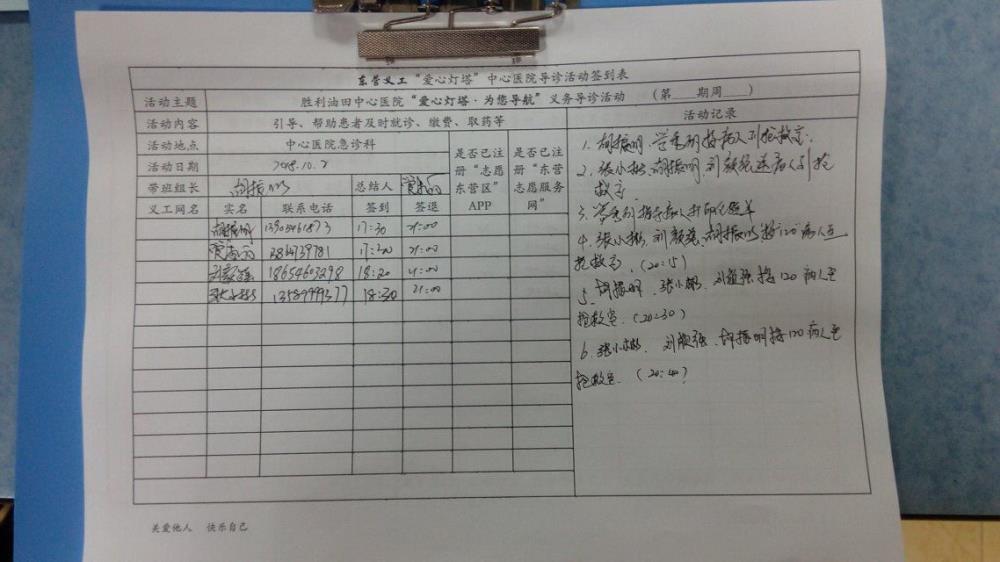 东营义工“爱心灯塔”中心医院导诊活动签到表
活动主题 胜利油田中心医院“爱心灯塔·为您导航”义务导诊活动 (第 期周 )
活动内容 引导、帮助患者及时就诊、缴费、取药等 活动记录
活动地点 中心医院急诊科
活动日期 2018.10.2
是否已注册“志愿东营区”APP
是否已注册“东营志愿服务网”
带班组长 胡振明 总结人
义工网名 实名 联系电话 签到 签退
胡振明 17:30 21:00
17:30 21:00
18654603298 18:20 21:00
张小彬 13589999377 18:30 21:00
1. 胡振明、 病人到抢救室.
2. 张小彬、胡振明、刘 送病人到抢
救室
3. 指导病人打印化验单
4. 张小彬、刘 、胡振明接120病人至
抢救室. (20:15)
5. 胡振明、张小彬、刘 接120病人至
抢救室. (20:30)
6. 张小彬、刘 、胡振明接120病人至
抢救室. (20:40)
关爱他人 快乐自己